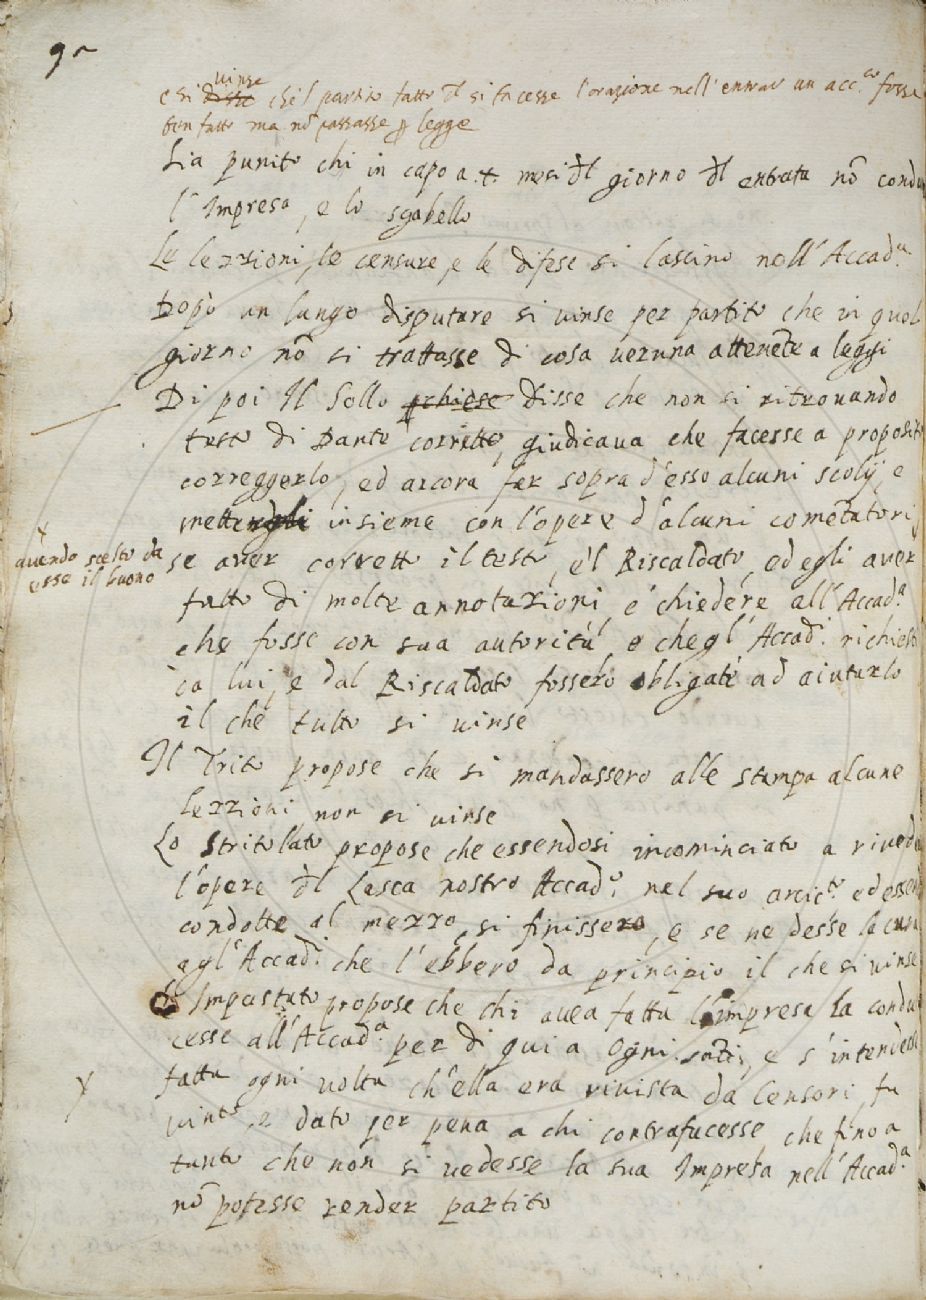 9
vinse
e si disse che'l partito fatto dl si facesse l'orazione nell'entrar un acc.co fosse
ben fatto ma nō passasse p legge
Sia punito chi in capo a .t. mesi dl giorno dl entrata nō condu
l'Impresa, e lo sgabello
Le lezzioni, le censure, e le difese si lascino nell'Accad.a
Dopò un lungo disputare si vinse per partito che in quel
giorno nō si trattasse di cosa veruna attenēte a leggi
Di poi Il Sollo pchiese disse che non si ritrovando
testo di Dante corretto, giudicava che facesse a proposito
correggerlo, ed ancora far sopra d'esso alcuni scolij, e
insieme con l'opere d'alcuni comētatori,
avendo scelto da
esse il buono
se aver corretto il testo, e'l Riscaldato, ed egli aver
fatto di molte annotazioni, e chiedere all'Accad.a
che fosse con sua autorità, e che gl'Accad.i richiesti
da lui, e dal Riscaldato fossero obligati ad aiutarlo
il che tutto si vinse
Il Trito propose che si mandassero alle stampa alcune
lezzioni, non si vinse
Lo Stritolato propose che essendosi incominciato a rivede
l'opere dl Lasca nostro Accad.o nel suo arcic.to ed essen
condotte al mezzo, si finissero, e se ne desse la cura
agl'Accad.i che l'ebbero da principio il che si vinse
Impastato propose che chi avea fatta l'impresa la condu
cesse all'Accad.a per di qui a Ogni Sāti, e s'intendesse
fatta ogni volta ch'ella era rivista da Censori, fu
vinto, e dato per pena a chi contrafacesse che fino a
tanto che non si vedesse la sua Impresa nell'Accad.a
nō potesse render partito